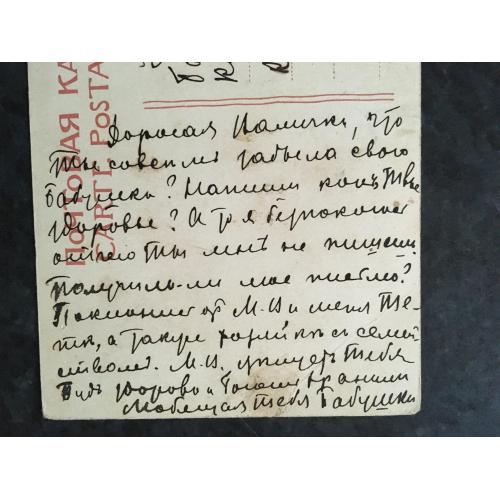 ПОЧТОВАЯ КА
CARTE POSTA
Дорогая Мамичка, что
Ты совсем забыла свою
Бабушку? Напиши какъ Твое
здоровье? А то я безпокоюсь
отчего Ты мнѣ не пишешь
Получила-ли мое письмо?
Поклонись отъ М.И и меня Те-
тѣ, а также съ семей
ствомъ. М.И. цѣлуетъ Тебя
Будь здорова и Богомъ хранима
Любящая тебя Бабушка